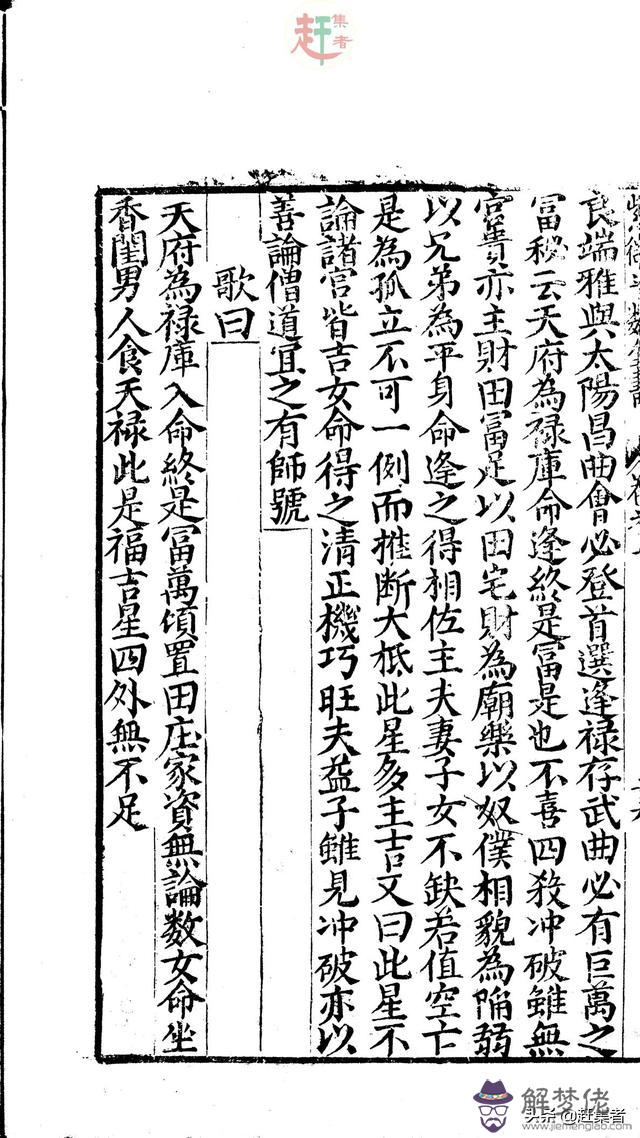 赶集者
良端雅與太陽昌曲會必登首選逢禄存武曲必有巨萬之
富秘云天府為禄庫命逢終是富是也不喜四殺冲破雖無
官貴亦主財田富足以田宅財為廟樂以奴僕相貌為陷弱
以兄弟為平身命逢之得相佐主夫妻子女不缺若值空亡
是為孤立不可一例而推断大柢此星多主吉又曰此星不
論諸宮皆吉女命得之清正機巧旺夫益子雖見冲破亦以
善論僧道宜之有師號
歌曰
天府為禄庫入命終是富萬頃置田庄家資無論数女命坐
香閨男人食天禄此是福吉星四外無不足
解梦佬
头条@赶集者
www.jiemenglao.com